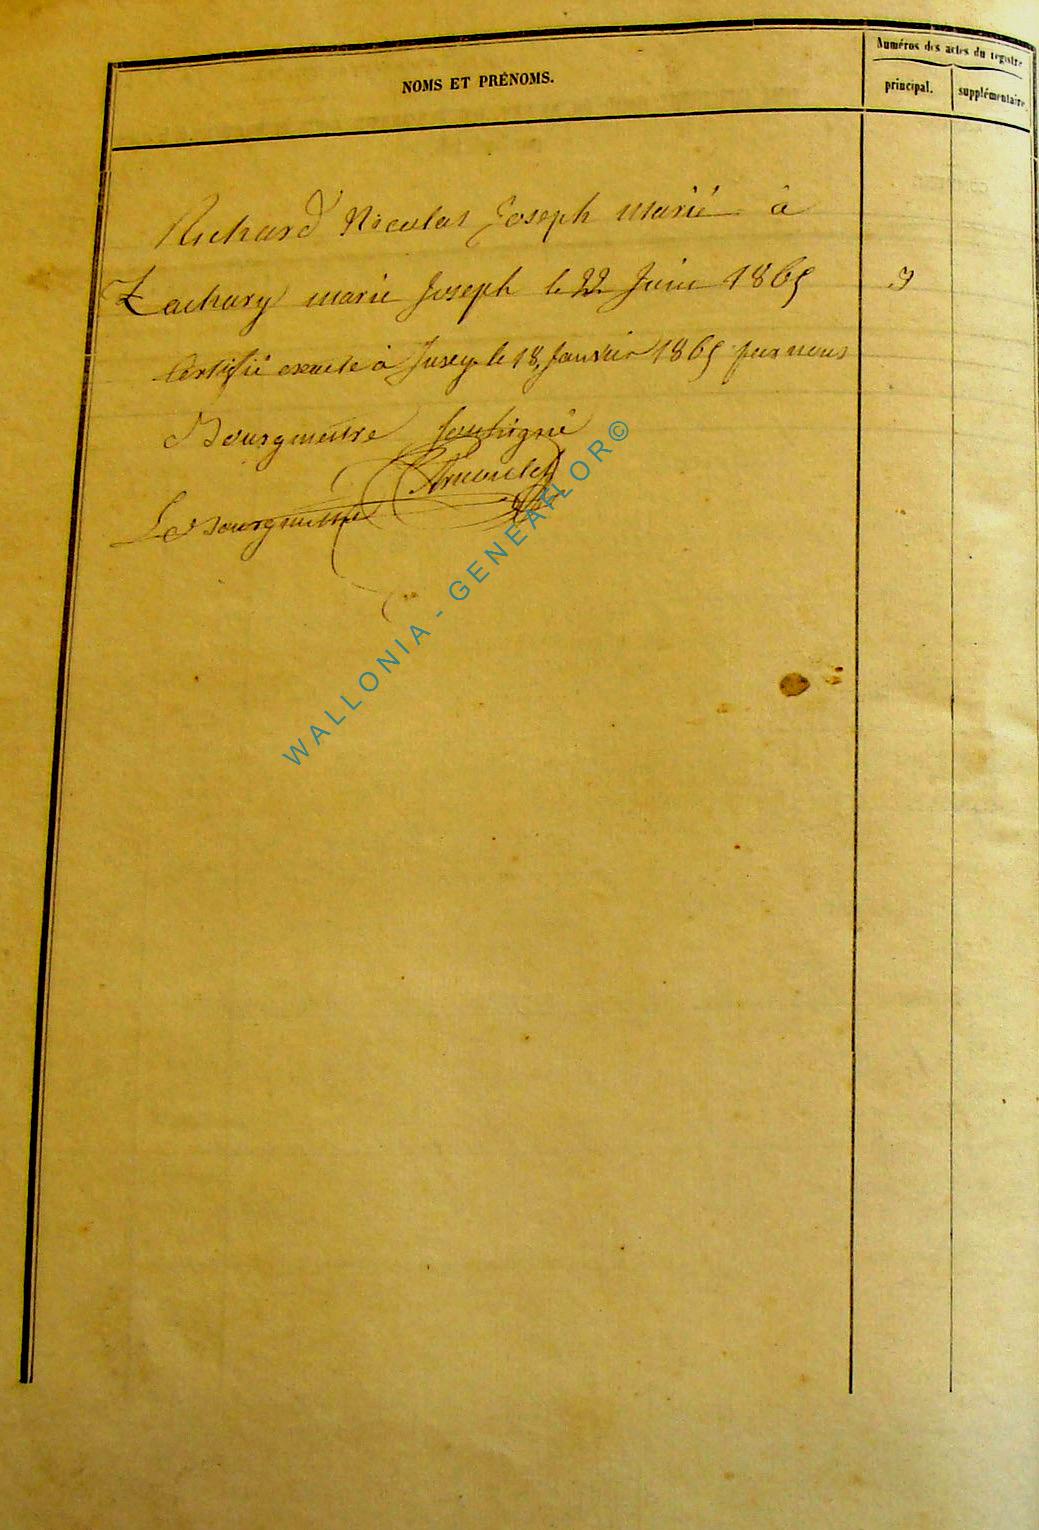 Numéros des actes du registre
NOMS ET PRÉNOMS.
principal. supplémentaire.
Richard Nicolas Joseph marié à
Zachary marie Joseph le 22 Juin 1865
Certifié exacte à Jusey le 18 Janvier 1865 par nous
Bourgmestre Soussigné
Le Bourgmestre
WALLONIA - GENEAFLOR©